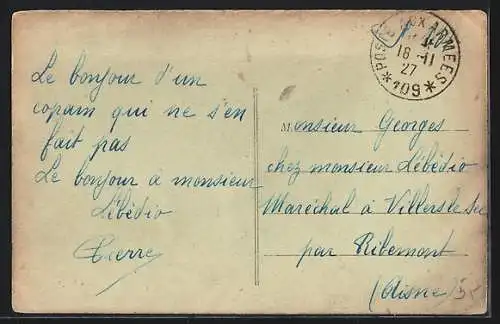 POSTE AUX ARMEES
18-11
27
*109*
Le bonjour d'un
copain qui ne s'en
fait pas
Le bonjour à monsieur
Lébédio
Pierre
Monsieur Georges
chez monsieur Lébédio
Maréchal à Villers le Sec
par Ribemont
(Aisne)